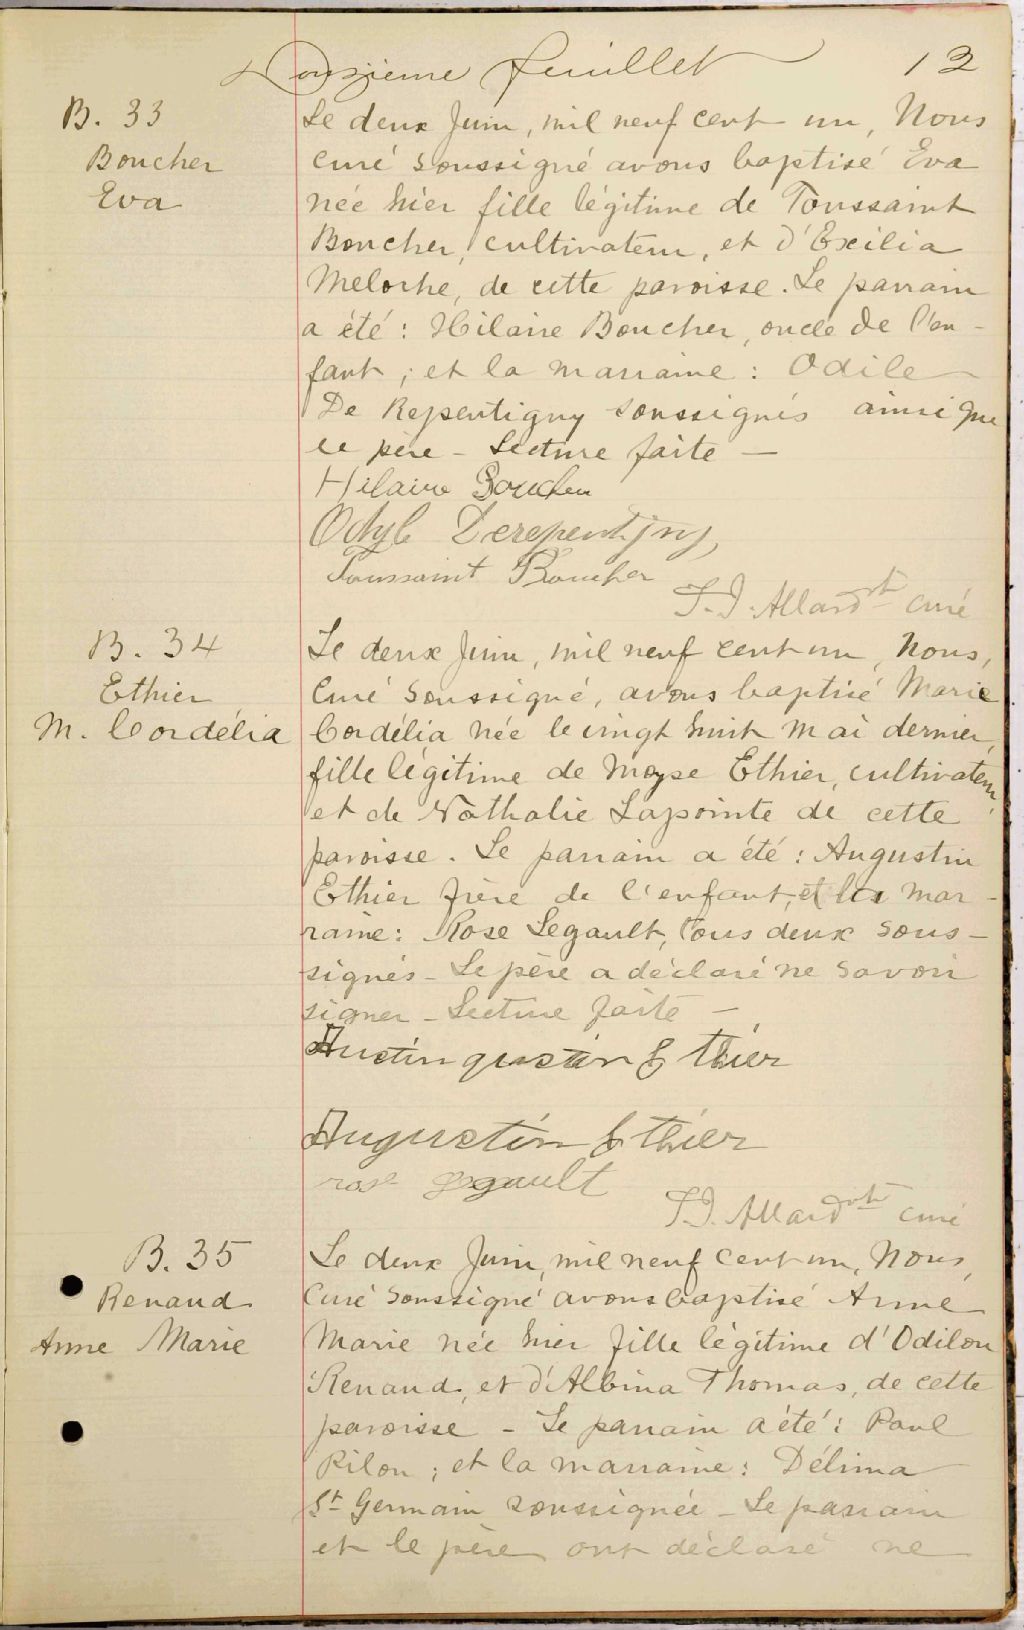 Douzième feuillet 12
B. 33
Boucher
Eva
Le deux Juin, mil neuf cent un, Nous
curé soussigné avons baptisé Eva
née hier fille légitime de Toussaint
Boucher, cultivateur, et d'Exilia
Meloche, de cette paroisse. Le parrain
a été : Hilaire Boucher, oncle de l'en-
fant ; et la marraine : Odile
De Repentigny soussignés ainsi que
le père - Lecture faite —
Hilaire Boucher
Odyle Derepentigny,
Toussaint Boucher
T. J. Allard ptr curé
B. 34
Ethier
M. Cordélia
Le deux Juin, mil neuf cent un, Nous,
Curé soussigné, avons baptisé Marie
Cordélia née le vingt huit Mai dernier,
fille légitime de Moyse Ethier, cultivateur,
et de Nathalie Lapointe de cette
paroisse. Le parrain a été : Augustin
Ethier frère de l'enfant, et la mar-
raine : Rose Legault, tous deux sous-
signés - Le père a déclaré ne savoir
signer - Lecture faite —
Ethier
Augustin Ethier
rose legault
T. J. Allard ptr curé
B. 35
Renaud
Anne Marie
Le deux Juin, mil neuf cent un, Nous,
Curé soussigné avons baptisé Anne
Marie née hier fille légitime d'Odilon
Renaud, et d'Albina Thomas, de cette
paroisse - Le parrain a été : Paul
Pilon ; et la marraine : Délima
St Germain soussignée - Le parrain
et le père ont déclaré ne